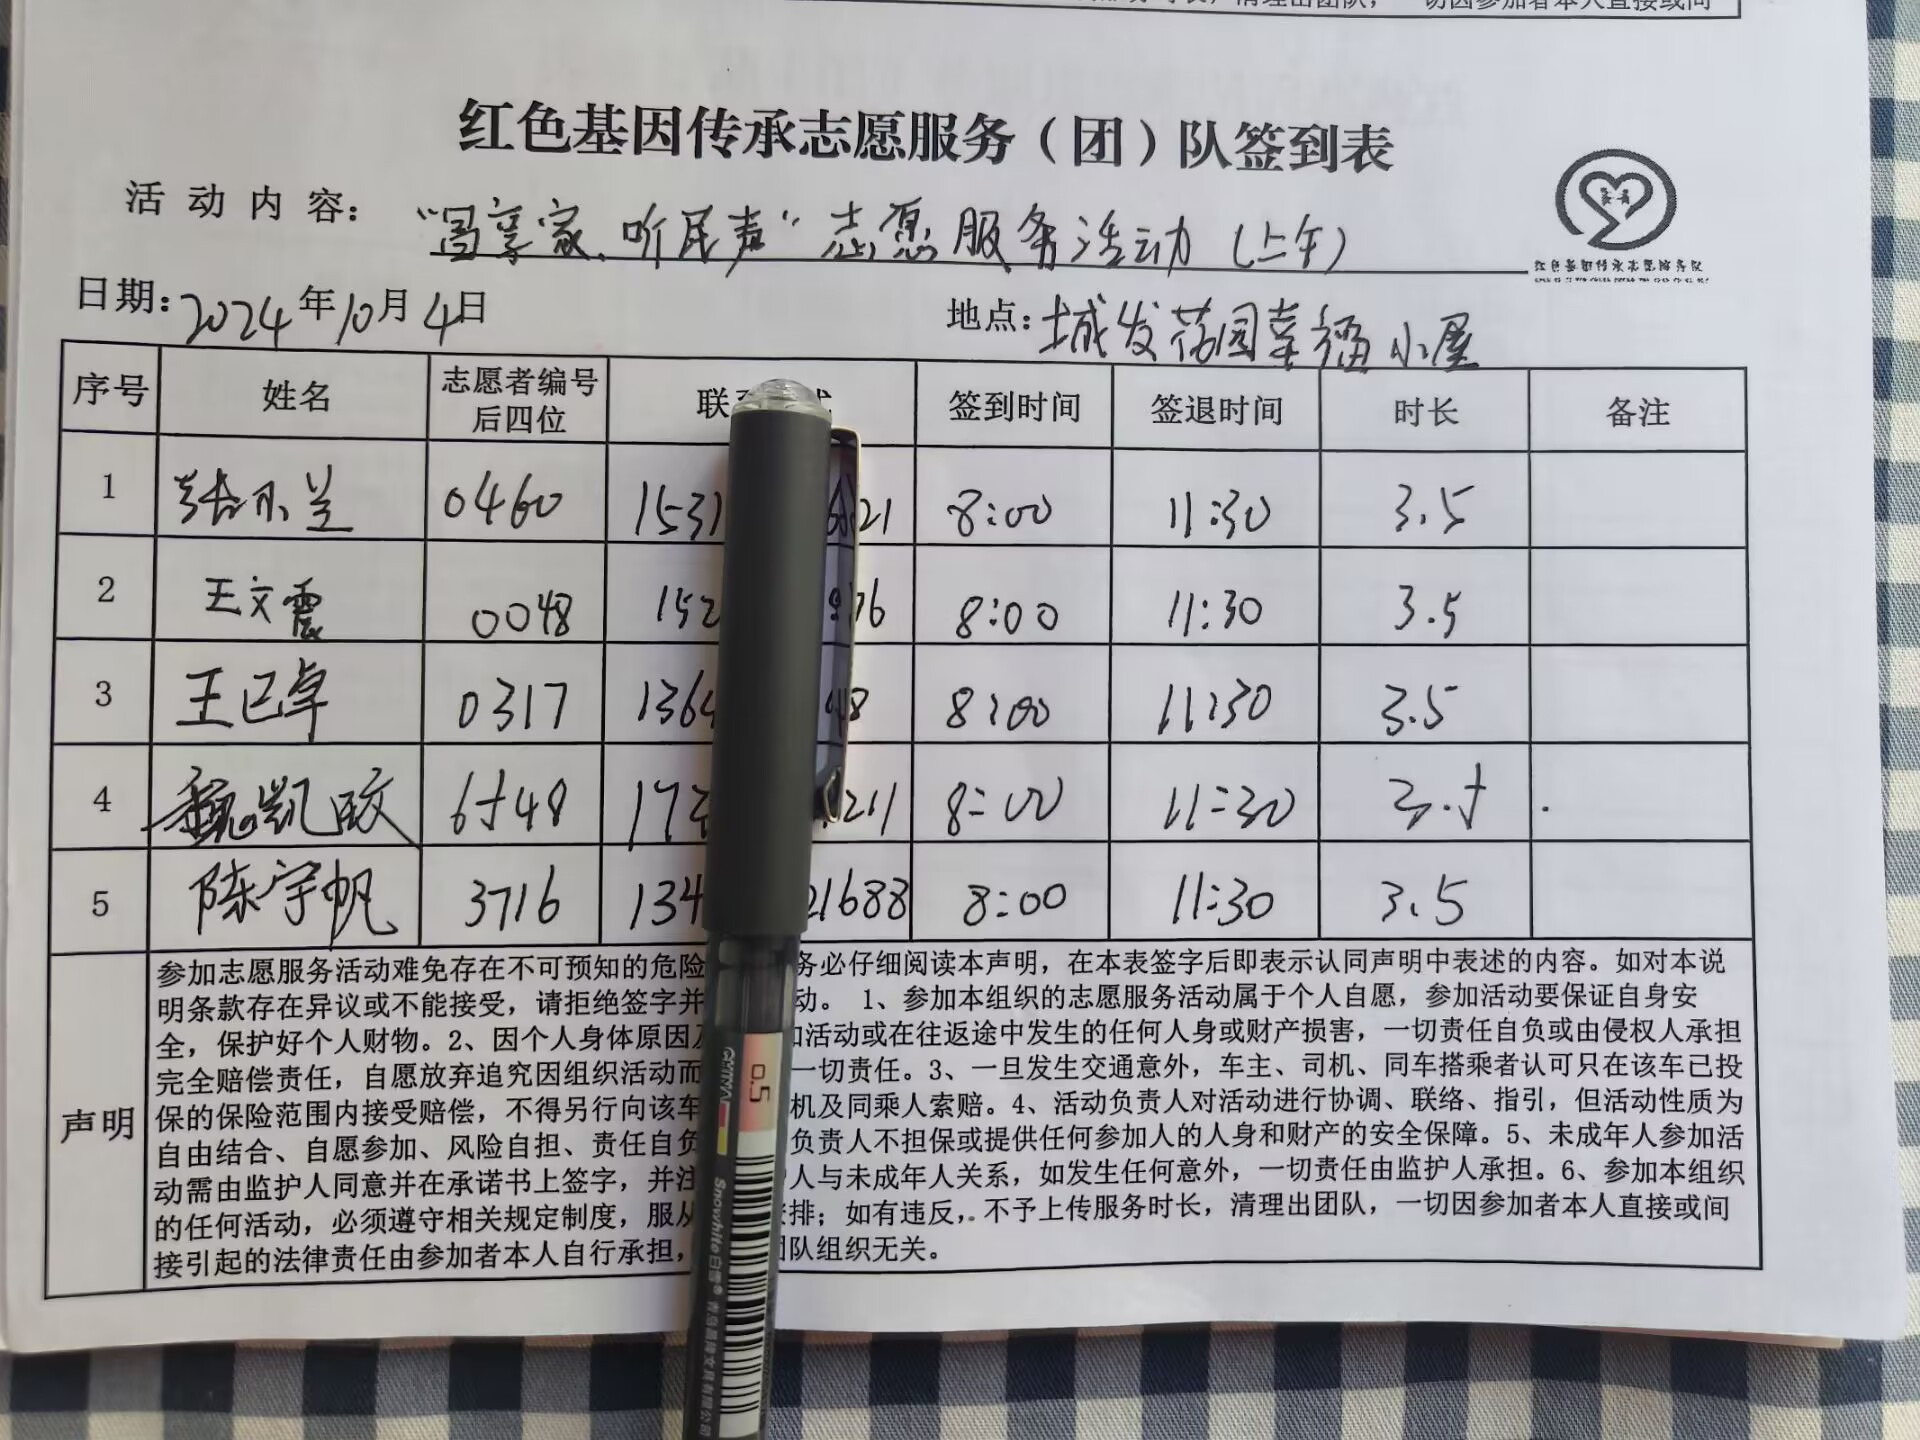 红色基因传承志愿服务（团）队签到表
活动内容： 享家、听民声"志愿服务活动（上午）
红色基因传承志愿服务队
日期：2024年10月4日 地点：城发花园幸福小屋
序号 姓名 志愿者编号后四位 联 签到时间 签退时间 时长 备注
1 张 兰 0460 1531 21 8:00 11:30 3.5
2 王文震 0048 152 76 8:00 11:30 3.5
3 王已卓 0317 1364 48 8:00 11:30 3.5
4 魏凯 6548 17 211 8:00 11:30 3.5
5 陈宇帆 3716 134 21688 8:00 11:30 3.5
声明
参加志愿服务活动难免存在不可预知的危险 务必仔细阅读本声明，在本表签字后即表示认同声明中表述的内容。如对本说
明条款存在异议或不能接受，请拒绝签字并 动。 1、参加本组织的志愿服务活动属于个人自愿，参加活动要保证自身安
全，保护好个人财物。2、因个人身体原因及 加活动或在往返途中发生的任何人身或财产损害，一切责任自负或由侵权人承担
完全赔偿责任，自愿放弃追究因组织活动而 一切责任。3、一旦发生交通意外，车主、司机、同车搭乘者认可只在该车已投
保的保险范围内接受赔偿，不得另行向该车 机及同乘人索赔。4、活动负责人对活动进行协调、联络、指引，但活动性质为
自由结合、自愿参加、风险自担、责任自负 负责人不担保或提供任何参加人的人身和财产的安全保障。5、未成年人参加活
动需由监护人同意并在承诺书上签字，并注 人与未成年人关系，如发生任何意外，一切责任由监护人承担。6、参加本组织
的任何活动，必须遵守相关规定制度，服从 排；如有违反，不予上传服务时长，清理出团队，一切因参加者本人直接或间
接引起的法律责任由参加者本人自行承担， 团队组织无关。
0.5
Snowhite白雪